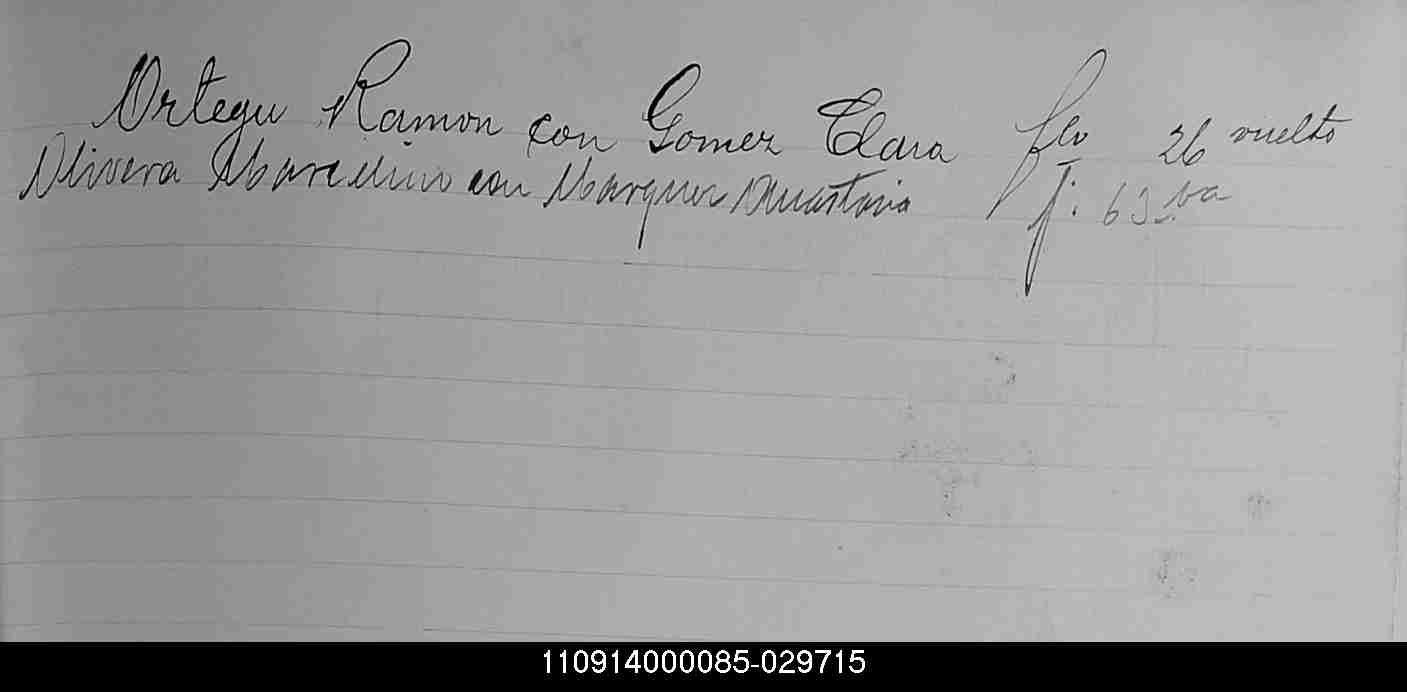 Ortega Ramon con Gomez Clara flo 26 vuelto
Olivera Marcelino con Marquez Anastacia f. 63 
110914000085-029715